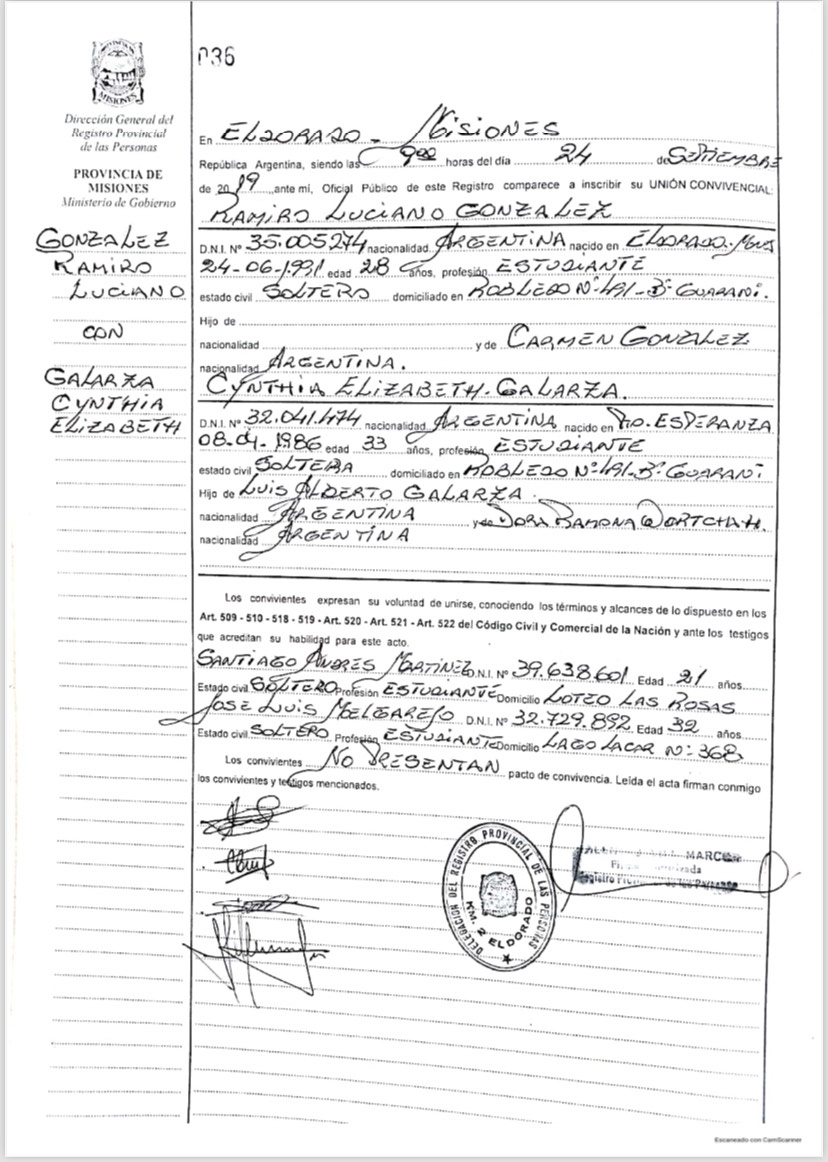 036
PROVINCIA DE
MISIONES
Dirección General del
Registro Provincial
de las Personas
PROVINCIA DE
MISIONES
Ministerio de Gobierno
GONZALEZ
RAMIRO
LUCIANO
CON
GALARZA
CYNTHIA
ELIZABETH
En ELDORADO - MISIONES
República Argentina, siendo las 9:00 horas del día 24 de SEPTIEMBRE
de 2019 ante mi, Oficial Público de este Registro comparece a inscribir su UNIÓN CONVIVENCIAL:
RAMIRO LUCIANO GONZALEZ
D.N.I. Nº 35.005.274 nacionalidad ARGENTINA nacido en ELDORADO-Mnes
24-06-1991 edad 28 años, profesión ESTUDIANTE
estado civil SOLTERO domiciliado en ROBLEDO Nº 491-Bº GUARANI.
Hijo de
nacionalidad y de CARMEN GONZALEZ
nacionalidad ARGENTINA.
CYNTHIA ELIZABETH GALARZA.
D.N.I. Nº 32.041.474 nacionalidad ARGENTINA nacido en Pto. ESPERANZA
08-04-1986 edad 33 años, profesión ESTUDIANTE
estado civil SOLTERA domiciliado en ROBLEDO Nº 491-Bº GUARANI
Hijo de LUIS ALBERTO GALARZA.
nacionalidad ARGENTINA y de DORA RAMONA
nacionalidad ARGENTINA
Los convivientes expresan su voluntad de unirse, conociendo los términos y alcances de lo dispuesto en los
Art. 509 - 510 - 518 - 519 - Art. 520 - Art. 521 - Art. 522 del Código Civil y Comercial de la Nación y ante los testigos
que acreditan su habilidad para este acto.
SANTIAGO ANDRES MARTINEZ D.N.I. Nº 39.638.601 Edad 21 años
Estado civil SOLTERO Profesión ESTUDIANTE Domicilio LOTEO LAS ROSAS
JOSE LUIS MELGAREJO D.N.I. Nº 32.729.892 Edad 32 años
Estado civil SOLTERO Profesión ESTUDIANTE Domicilio LAGO LACAR Nº 368
Los convivientes NO PRESENTAN pacto de convivencia. Leída el acta firman conmigo
los convivientes y testigos mencionados.
DELEGACION DEL REGISTRO PROVINCIAL DE LAS PERSONAS
KM. 2 ELDORADO
Escaneado con CamScanner